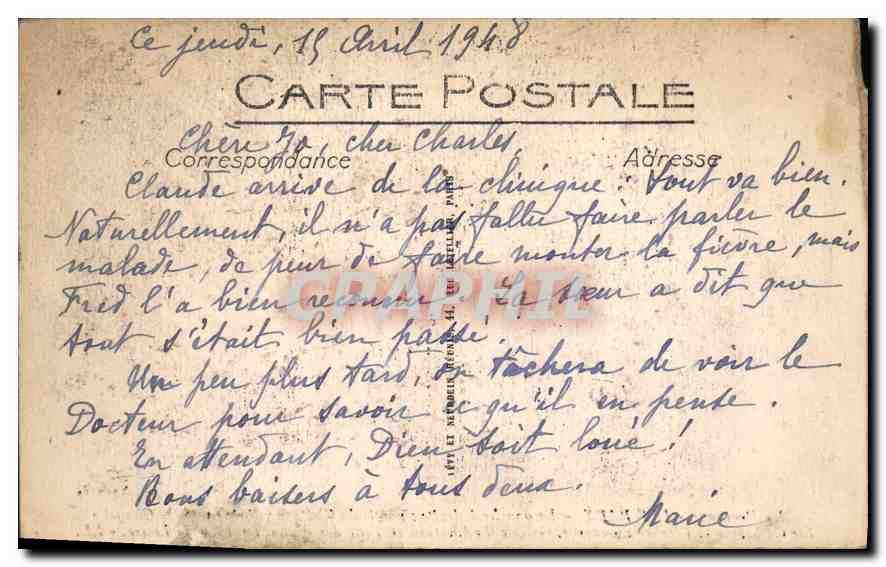 Ce jeudi, 15 Avril 1948
CARTE POSTALE
Chère Jo, cher Charles,
Correspondance
Adresse
Claude arrive de la clinique : tout va bien.
Naturellement, il n'a pas fallu faire parler le
malade, de peur de faire monter la fièvre, mais
Fred l'a bien reconnu. La sœur a dit que
tout s'était bien passé.
Un peu plus tard, on tâchera de voir le
Docteur pour savoir ce qu'il en pense.
En attendant, Dieu soit loué !
Bons baisers à tous deux.
Marie
LÉVY ET NEURDEIN RÉUNIS, 44, RUE LETELLIER, PARIS
CPAPHIL